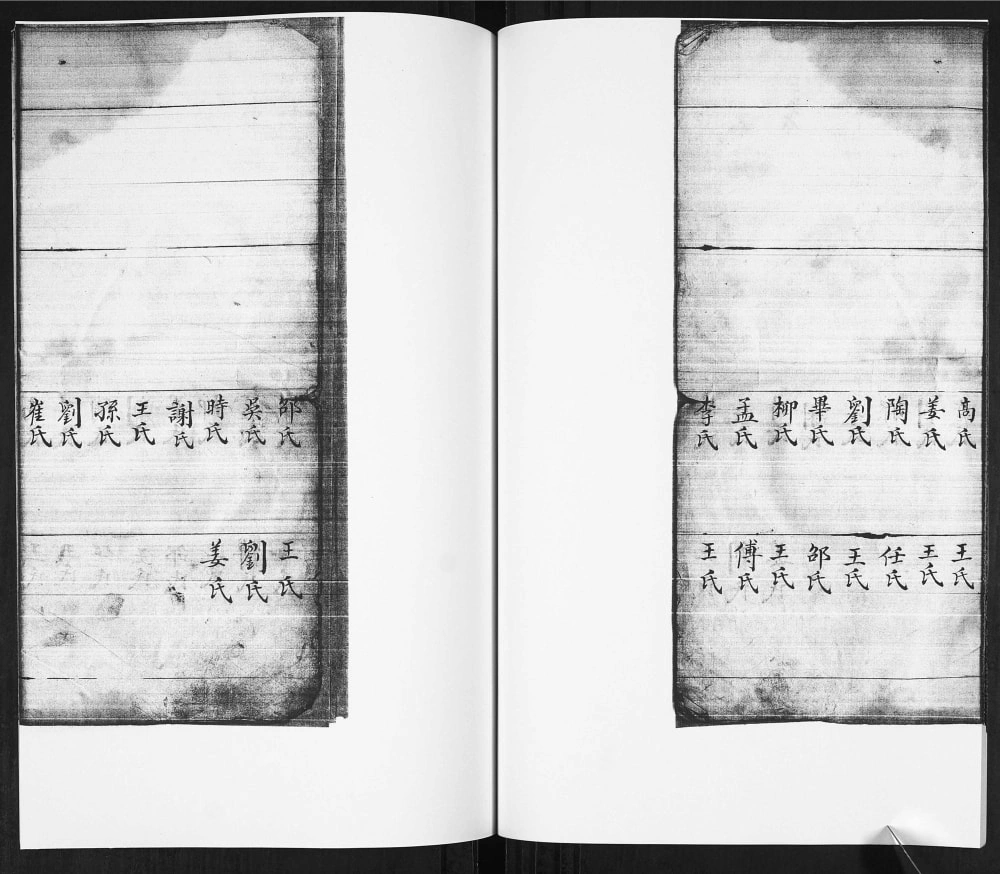 高氏
姜氏
陶氏
劉氏
畢氏
柳氏
孟氏
李氏
王氏
王氏
任氏
王氏
邵氏
王氏
傅氏
王氏
邵氏
吳氏
時氏
謝氏
王氏
孫氏
劉氏
崔氏
王氏
劉氏
姜氏